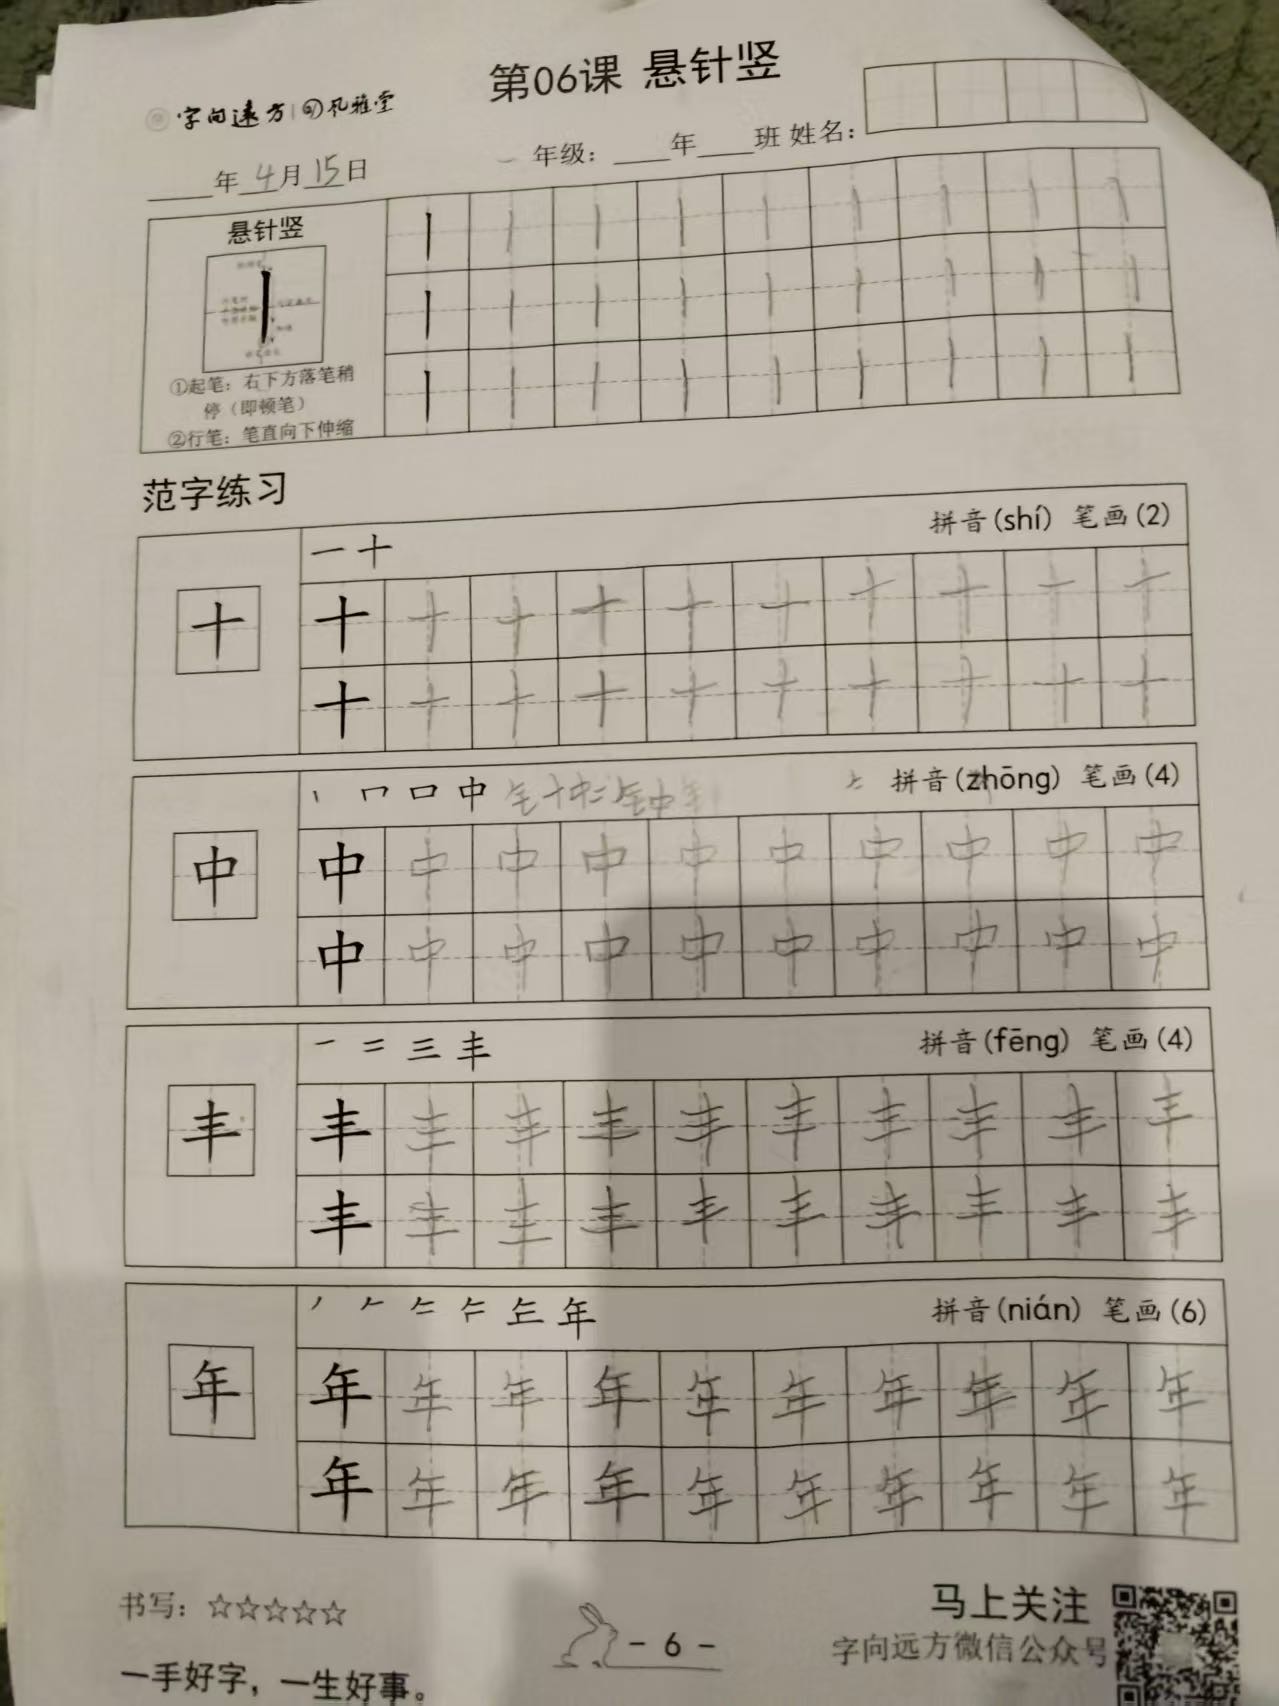 第06课 悬针竖
字向远方 | 孔雅堂
____年 4 月 15 日 年级：____年____班 姓名：
悬针竖
①起笔：右下方落笔稍
停（即顿笔）
②行笔：笔直向下伸缩
范字练习
一 十 拼音(shí) 笔画(2)
十 十 十 十 十 十 十 十 十 十 十
十 十 十 十 十 十 十 十 十 十
丨 冂 口 中 拼音(zhōng) 笔画(4)
中 中 中 中 中 中 中 中 中 中 中
中 中 中 中 中 中 中 中 中 中
一 二 三 丰 拼音(fēng) 笔画(4)
丰 丰 丰 丰 丰 丰 丰 丰 丰 丰 丰
丰 丰 丰 丰 丰 丰 丰 丰 丰 丰
年 拼音(nián) 笔画(6)
年 年 年 年 年 年 年 年 年 年 年
年 年 年 年 年 年 年 年 年 年
书写：☆☆☆☆☆
一手好字，一生好事。
- 6 -
马上关注
字向远方微信公众号